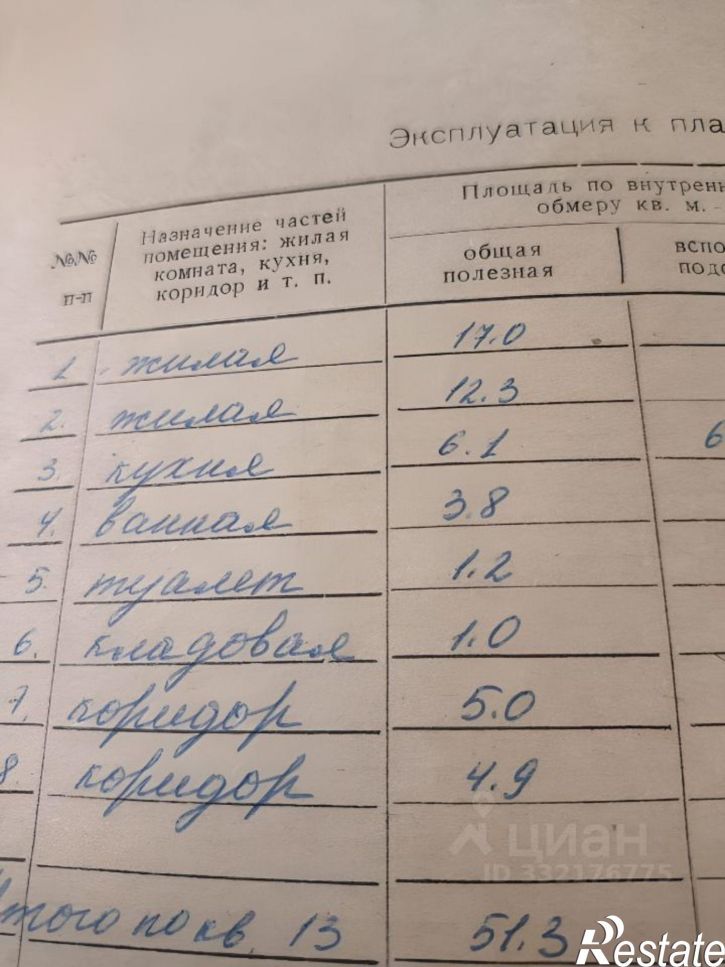 Эксплуатация к пла
№№ п-п
Назначение частей
помещения: жилая
комната, кухня,
коридор и т. п.
Площадь по внутрен
обмеру кв. м. -
общая
полезная
вспо
подс
1. жилая 17.0
2. жилая 12.3
3. кухня 6.1 6
4. ванная 3.8
5. туалет 1.2
6. кладовая 1.0
7. коридор 5.0
8. коридор 4.9
Итого по кв. 13 51.3
циан
ID 332176775
Restate